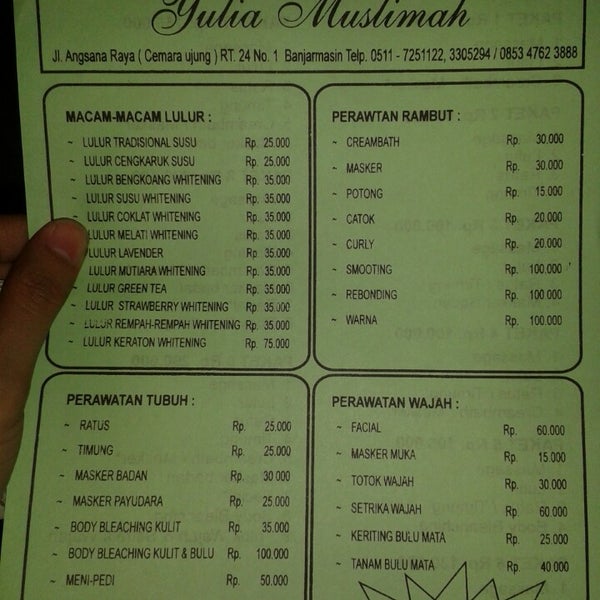 Yulia Muslimah
Jl. Angsana Raya ( Cemara ujung ) RT. 24 No. 1 Banjarmasin Telp. 0511 - 7251122, 3305294 / 0853 4762 3888
MACAM-MACAM LULUR :
~ LULUR TRADISIONAL SUSU Rp. 25.000
~ LULUR CENGKARUK SUSU Rp. 25.000
~ LULUR BENGKOANG WHITENING Rp. 35.000
~ LULUR SUSU WHITENING Rp. 35.000
~ LULUR COKLAT WHITENING Rp. 35.000
LULUR MELATI WHITENING Rp. 35.000
LULUR LAVENDER Rp. 35.000
LULUR MUTIARA WHITENING Rp. 35.000
~ LULUR GREEN TEA Rp. 35.000
~ LULUR STRAWBERRY WHITENING Rp. 35.000
~ LULUR REMPAH-REMPAH WHITENING Rp. 35.000
~ LULUR KERATON WHITENING Rp. 75.000
PERAWTAN RAMBUT :
~ CREAMBATH Rp. 30.000
~ MASKER Rp. 30.000
~ POTONG Rp. 15.000
~ CATOK Rp. 20.000
~ CURLY Rp. 20.000
~ SMOOTING Rp. 100.000
~ REBONDING Rp. 100.000
~ WARNA Rp. 100.000
PERAWATAN TUBUH :
~ RATUS Rp. 25.000
~ TIMUNG Rp. 25.000
~ MASKER BADAN Rp. 30 000
~ MASKER PAYUDARA Rp. 25.000
~ BODY BLEACHING KULIT Rp. 35.000
~ BODY BLEACHING KULIT & BULU Rp. 100.000
~ MENI-PEDI Rp. 50.000
PERAWATAN WAJAH :
~ FACIAL Rp. 60.000
~ MASKER MUKA Rp. 15.000
~ TOTOK WAJAH Rp. 30.000
~ SETRIKA WAJAH Rp. 60.000
~ KERITING BULU MATA Rp. 25.000
~ TANAM BULU MATA Rp. 40.000